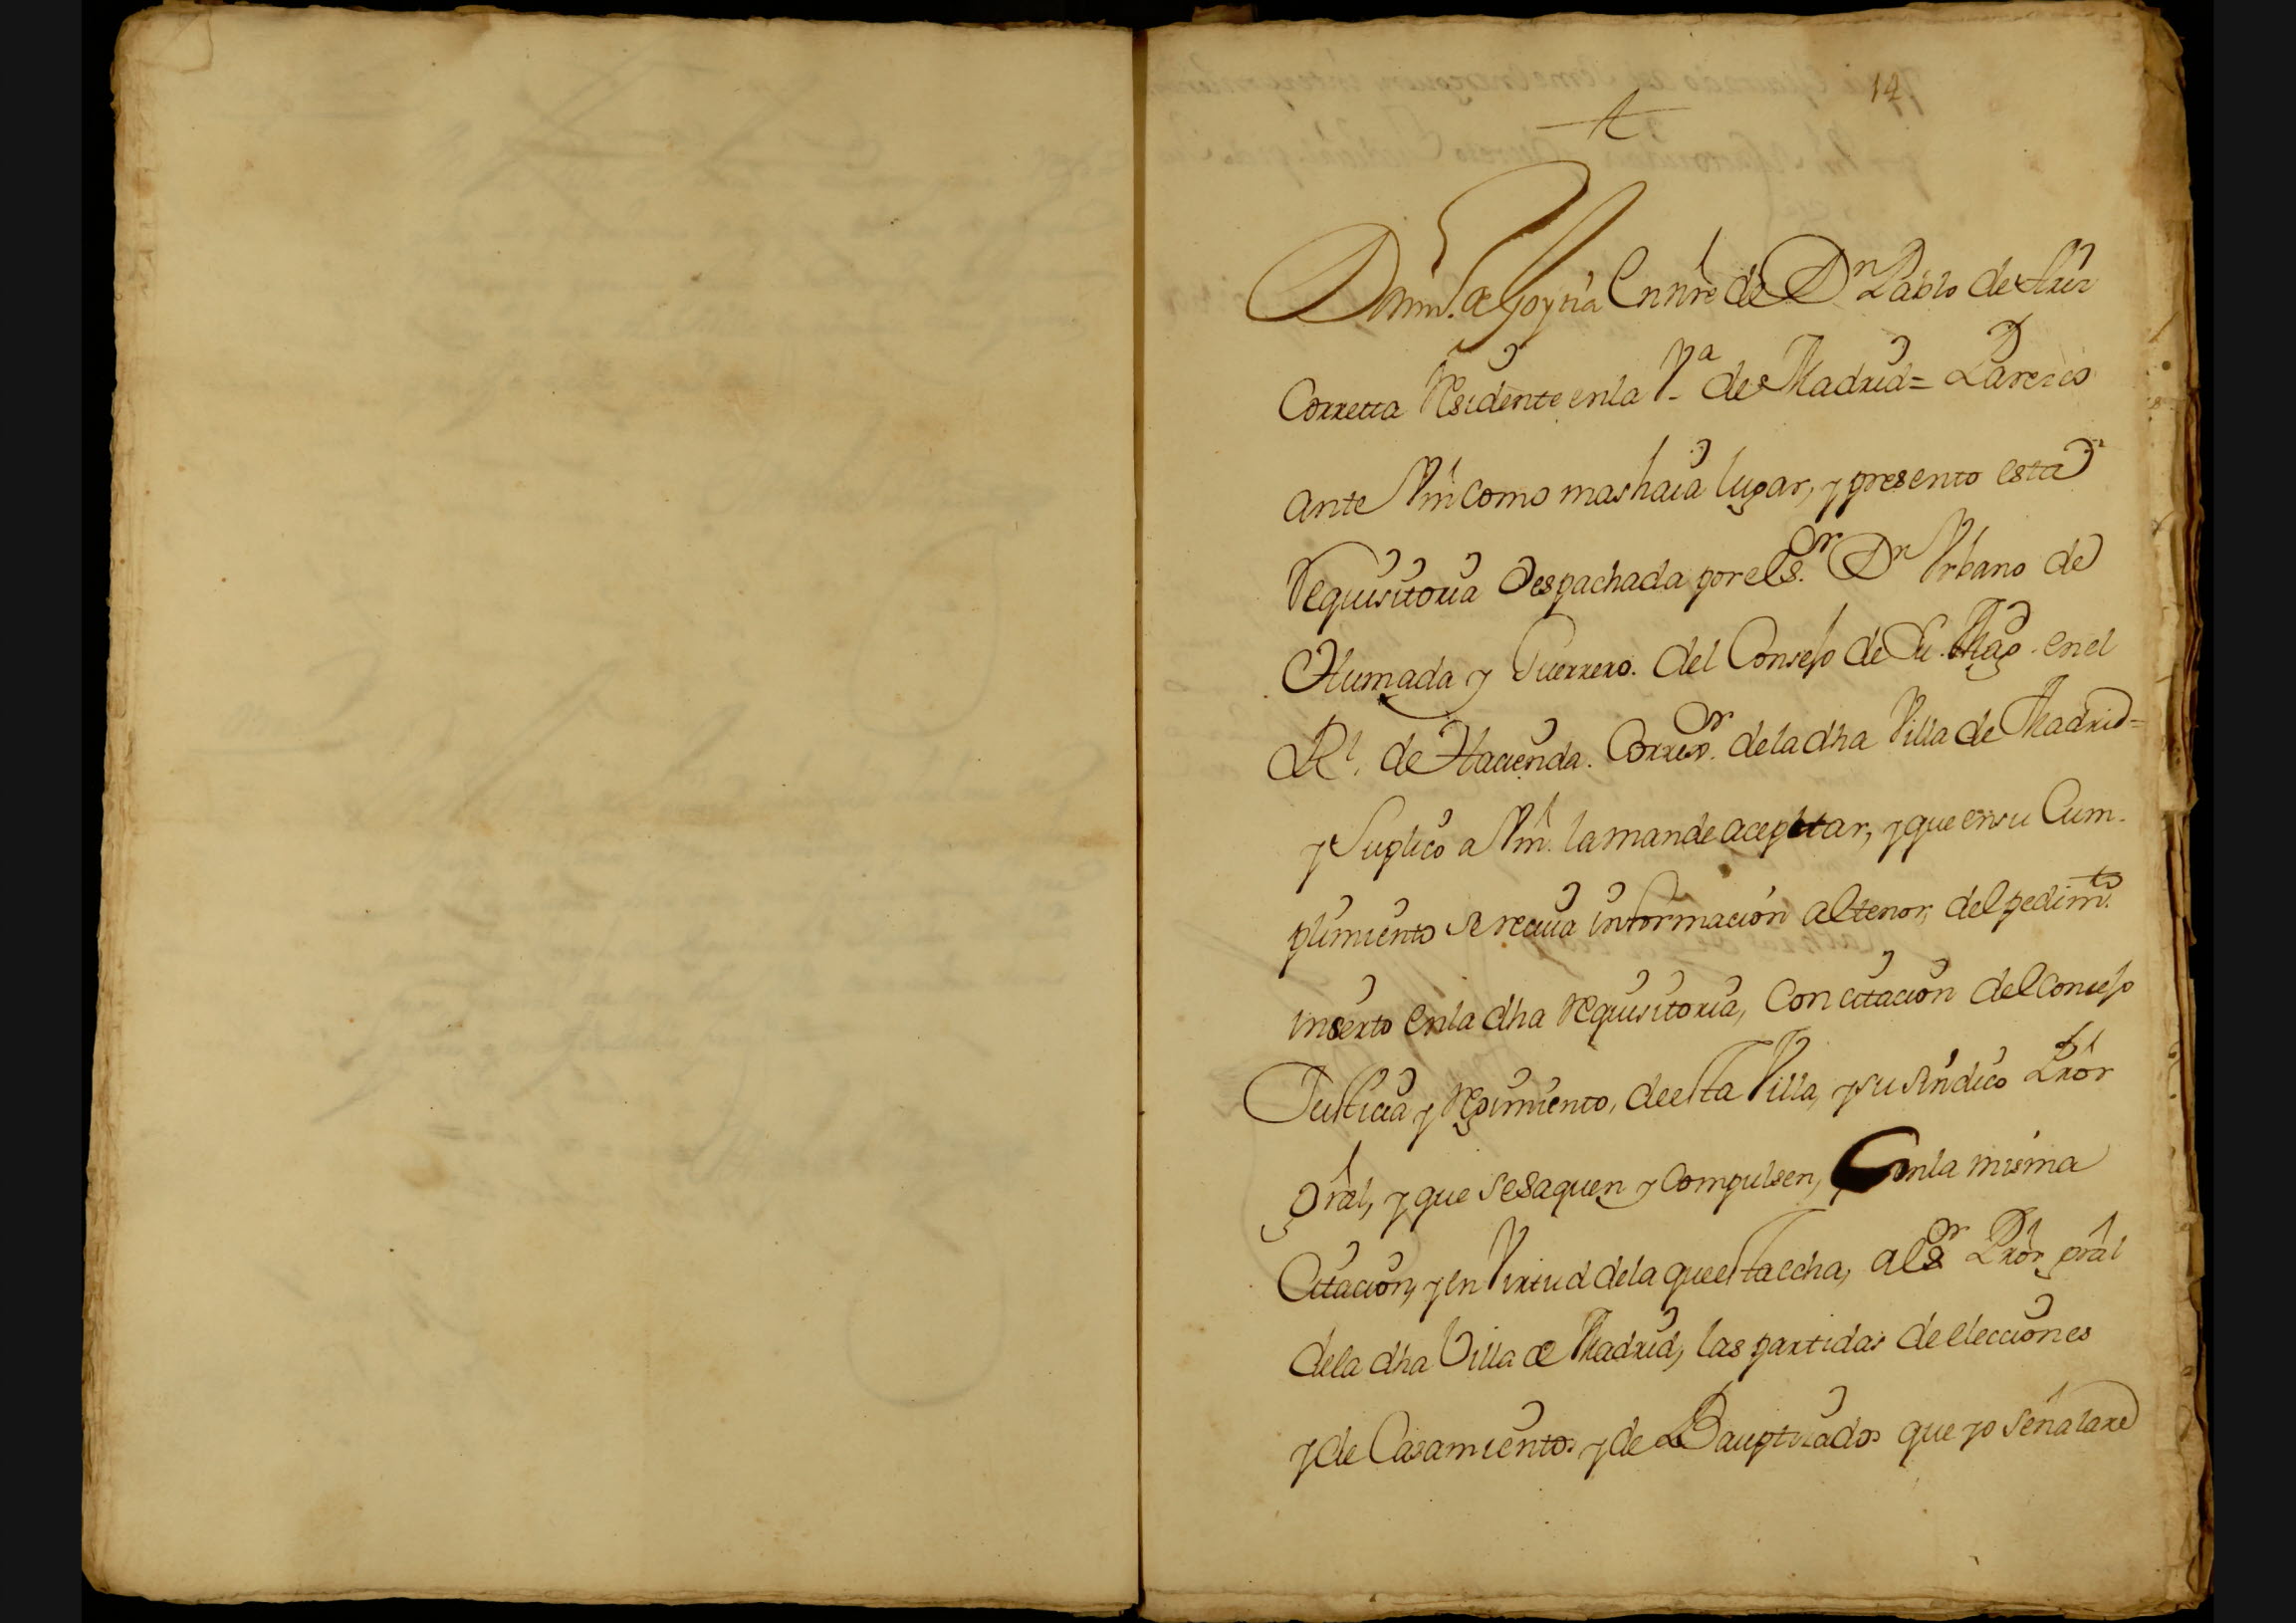 14
Domin. de Goytia En nre de Dn Pablo de
Correa Residente en la Va de Madrid = Parezco
ante Vm como mas haia lugar, y presento esta
Requisitoria Despachada por el Sor Dn Vrbano de
Ahumada y Guerrero. del Consejo de Su Mag. en el
Rl. de Hacienda. Correxor. de la dha Villa de Madrid =
y Suplico a Vm. la mande aceptar, y que en su Cum-
plimiento se reciua informacion al tenor, del pedimto.
inserto en la dha Requisitoria, Con citacion del Consejo
Justicia y Regimiento, de esta Villa, y su sindico Pror
gral, y que se saquen y Compulsen, Con la misma
Citacion, y en Virtud de la que esta echa, al Sr Pror gral
de la dha Villa de Madrid, las partidas de elecciones
y de Casamientos y de Bauptizados que yo señalare